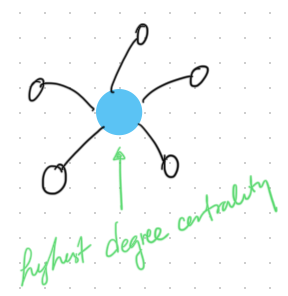 highest degree centrality